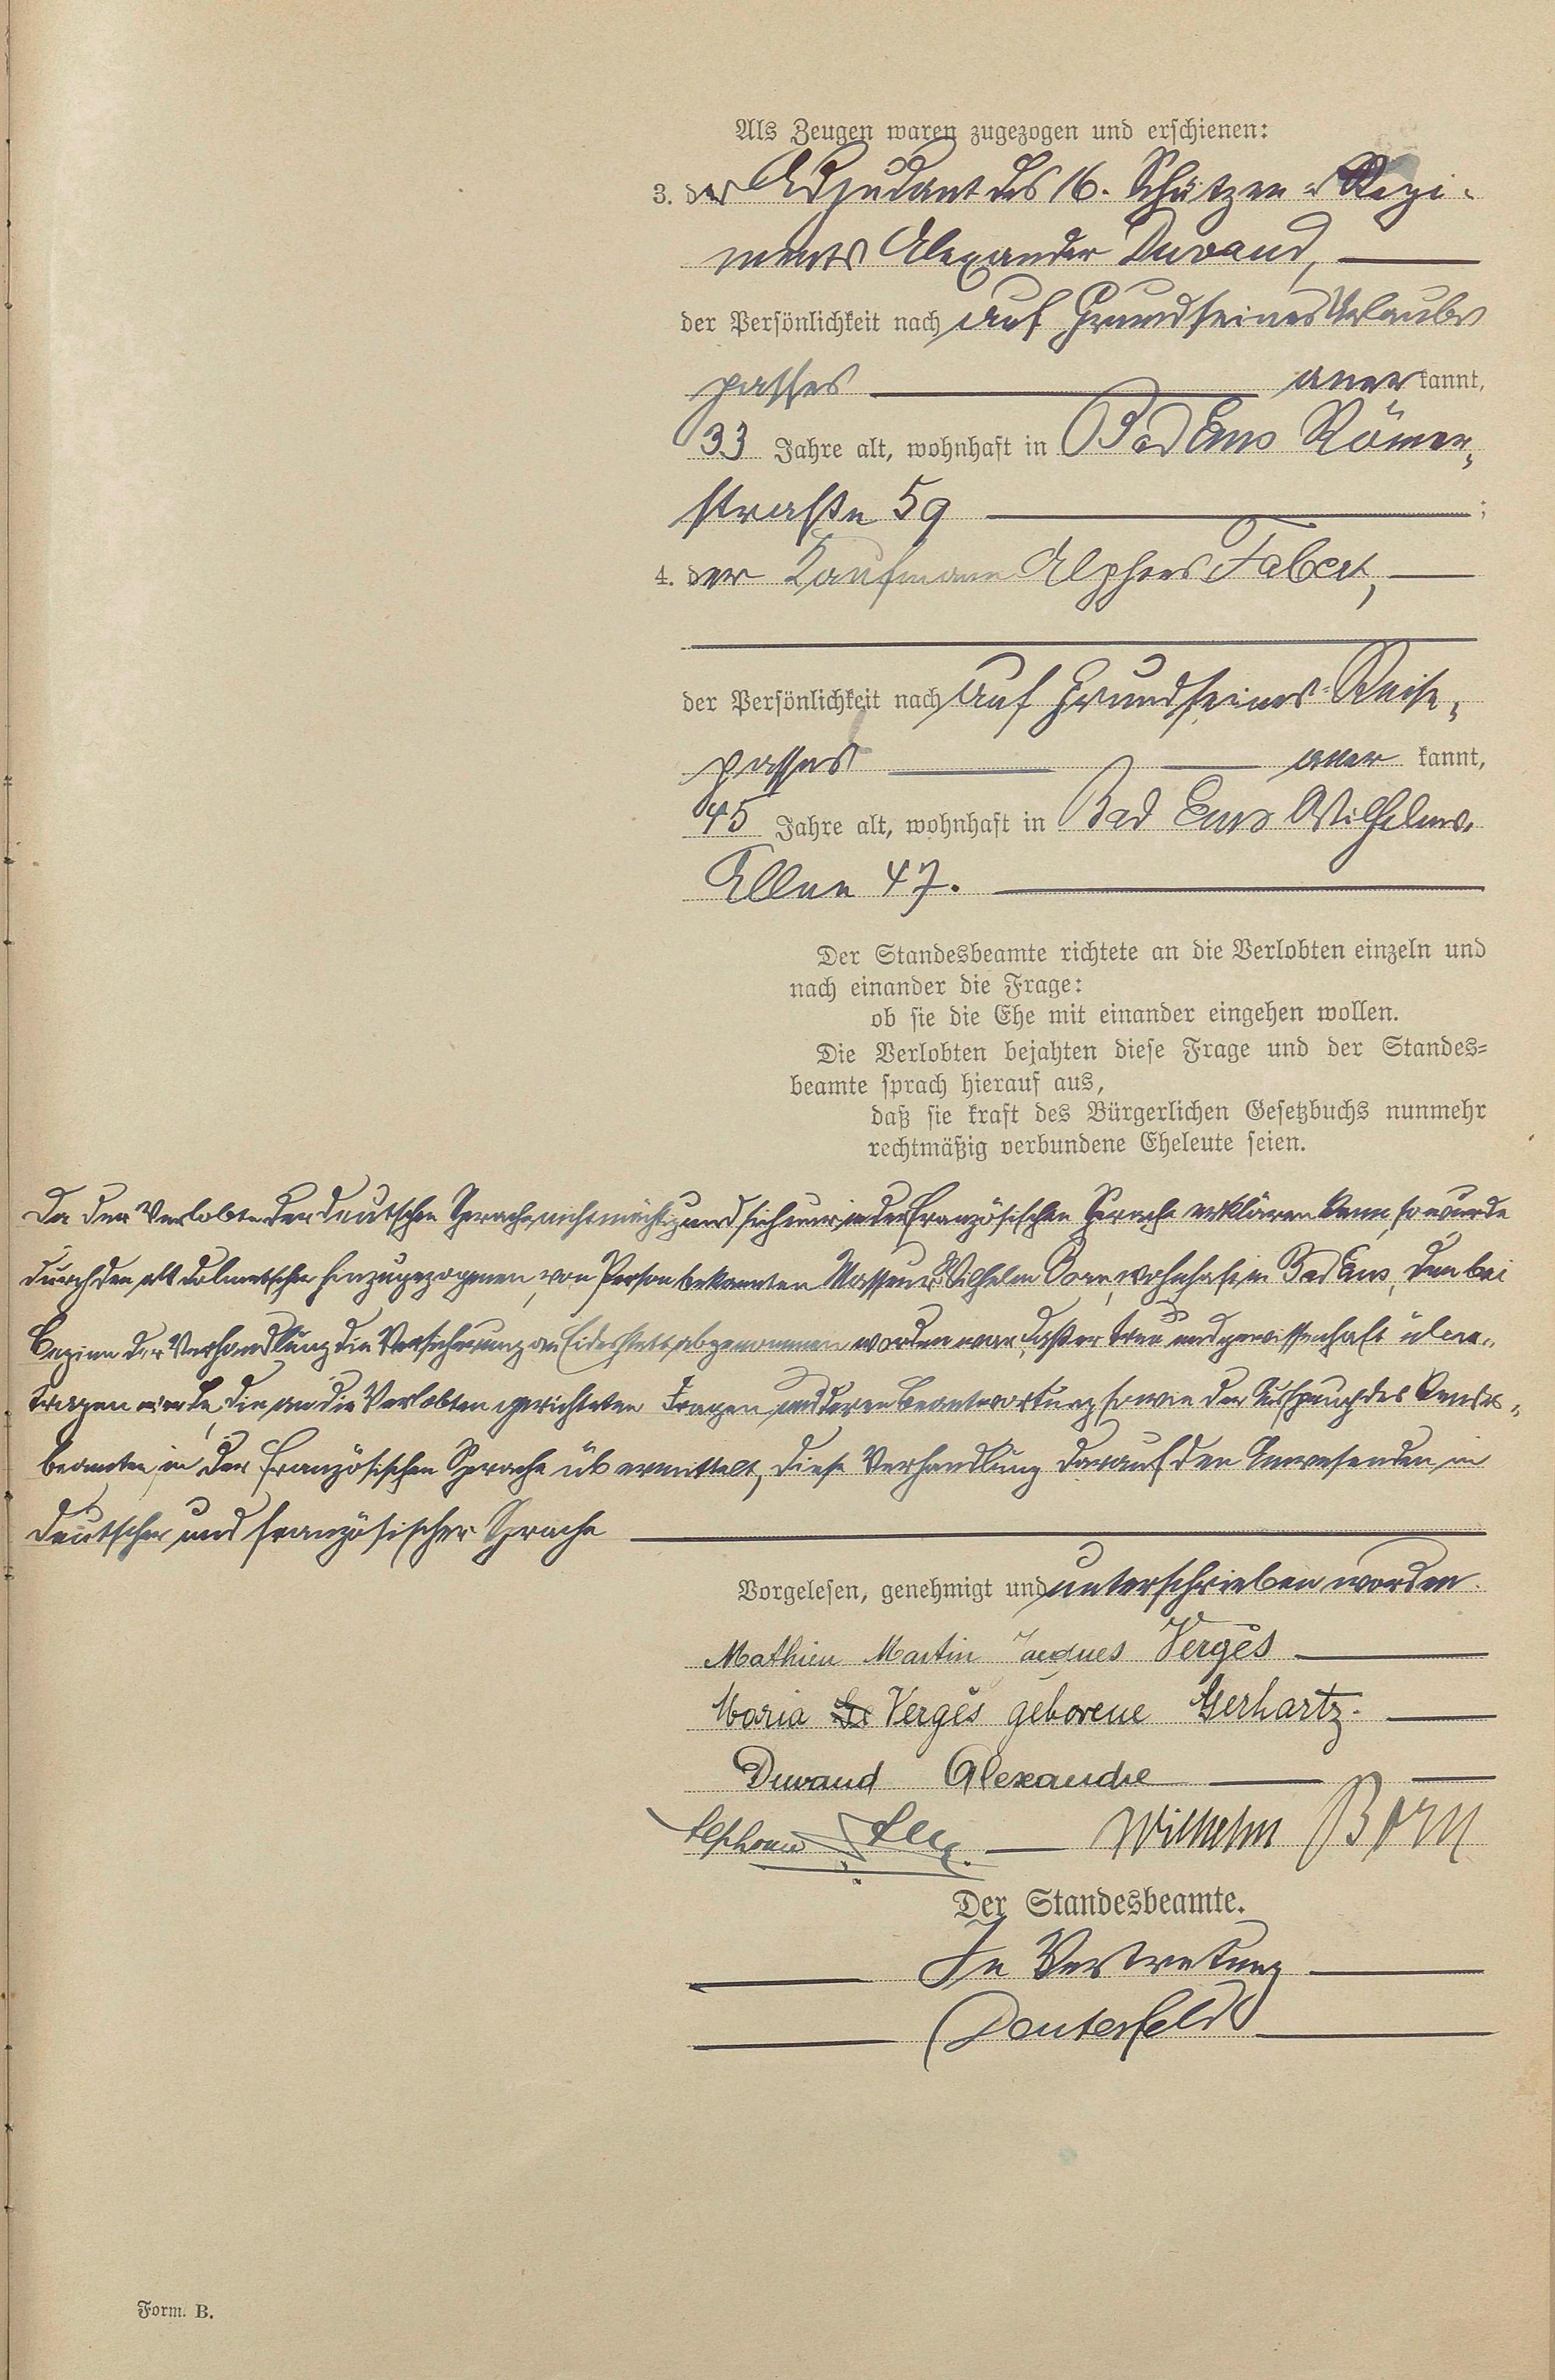 Als Zeugen waren zugezogen und erschienen:
3. der Adjudant des 16. Schützen = Regi-
ments Alexander Durand,
der Persönlichkeit nach auf Grund seines Urlaubs
passes anerkannt,
33 Jahre alt, wohnhaft in Bad Ems Römer-
straße 59 ;
4. der Kaufmann Alphons
der Persönlichkeit nach auf Grund seines Reise-
passes aner kannt,
45 Jahre alt, wohnhaft in Bad Ems Wilhelms-
Allee 47.
Der Standesbeamte richtete an die Verlobten einzeln und
nach einander die Frage:
ob sie die Ehe mit einander eingehen wollen.
Die Verlobten bejahten diese Frage und der Standes=
beamte sprach hierauf aus,
daß sie kraft des Bürgerlichen Gesetzbuchs nunmehr
rechtmäßig verbundene Eheleute seien.
Da der Verlobte der deutschen Sprache nicht mächtig und sich nur in der französischen Sprache erklären kann, so wurde
durch den als Dolmetscher hinzugezogenen, von Person bekannten Masseur Wilhelm Born, wohnhaft in Bad Ems, dem bei
Beginn der Verhandlung die Versicherung an Eidesstatt abgenommen worden war, daß er treu und gewissenhaft über-
tragen werde, die an die Verlobten gerichteten Fragen und deren Beantwortung sowie der Ausspruch des Standes-
beamten in der französischen Sprache übermittelt, diese Verhandlung darauf den Anwesenden in
deutscher und französischer Sprache
Vorgelesen, genehmigt und unterschrieben worden.
Mathieu Martin Jacques Vergès
Maria Vergès geborene Gerhartz.
Durand Alexandre
Wilhelm Born
Der Standesbeamte.
In Vertretung
Form. B.